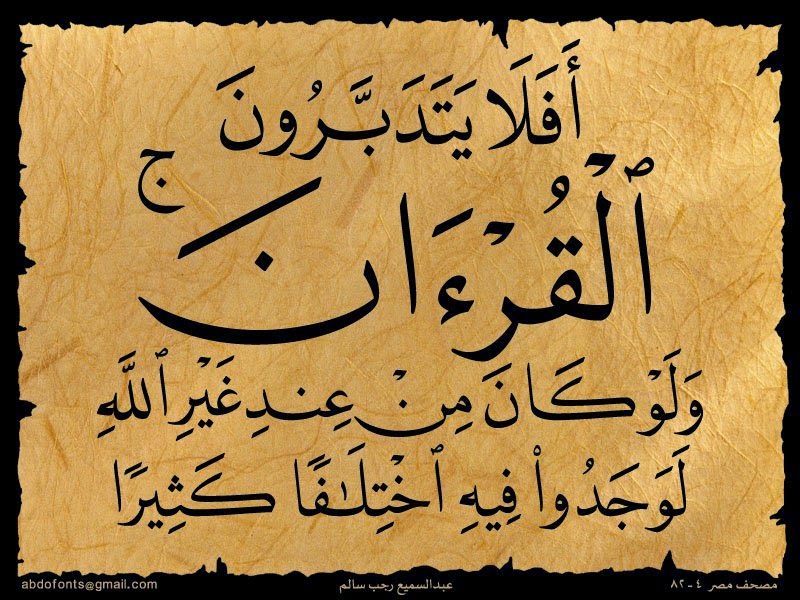 أَفَلَا يَتَدَبَّرُونَ
ٱلْقُرْءَانَ ۚ
وَلَوْ كَانَ مِنْ عِندِ غَيْرِ ٱللَّهِ
لَوَجَدُوا۟ فِيهِ ٱخْتِلَٰفًا كَثِيرًا
مصحف مصر ٤-٨٢
عبدالسميع رجب سالم
abdofonts@gmail.com